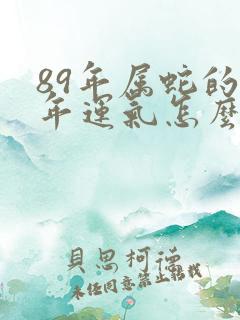 89年属蛇的
年运氣怎麼
貝思柯德
未经同意禁止转载